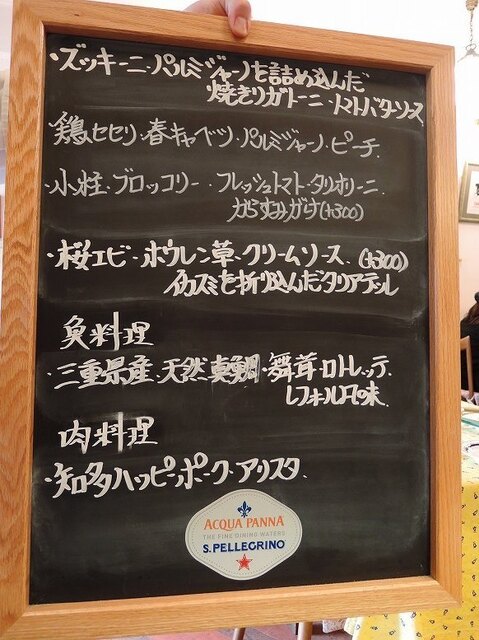 ・ズッキーニ・パルミジャーノを詰め込んだ
焼きリガトーニ・トマトバターソース
鶏セセリ・春キャベツ・パルミジャーノ・ピーチ.
・小柱・ブロッコリー・フレッシュトマト・タリオリーニ.
からすみがけ(+300)
・桜エビ・ホウレン草・クリームソース.(+300)
イカスミを折り込んだタリアテッレ
魚料理
・三重県産.天然真鯛・舞茸ロトレッテ.
レフォール風味.
肉料理
・知多ハッピーポーク・アリスタ.
ACQUA PANNA
THE FINE DINING WATERS
S.PELLEGRINO